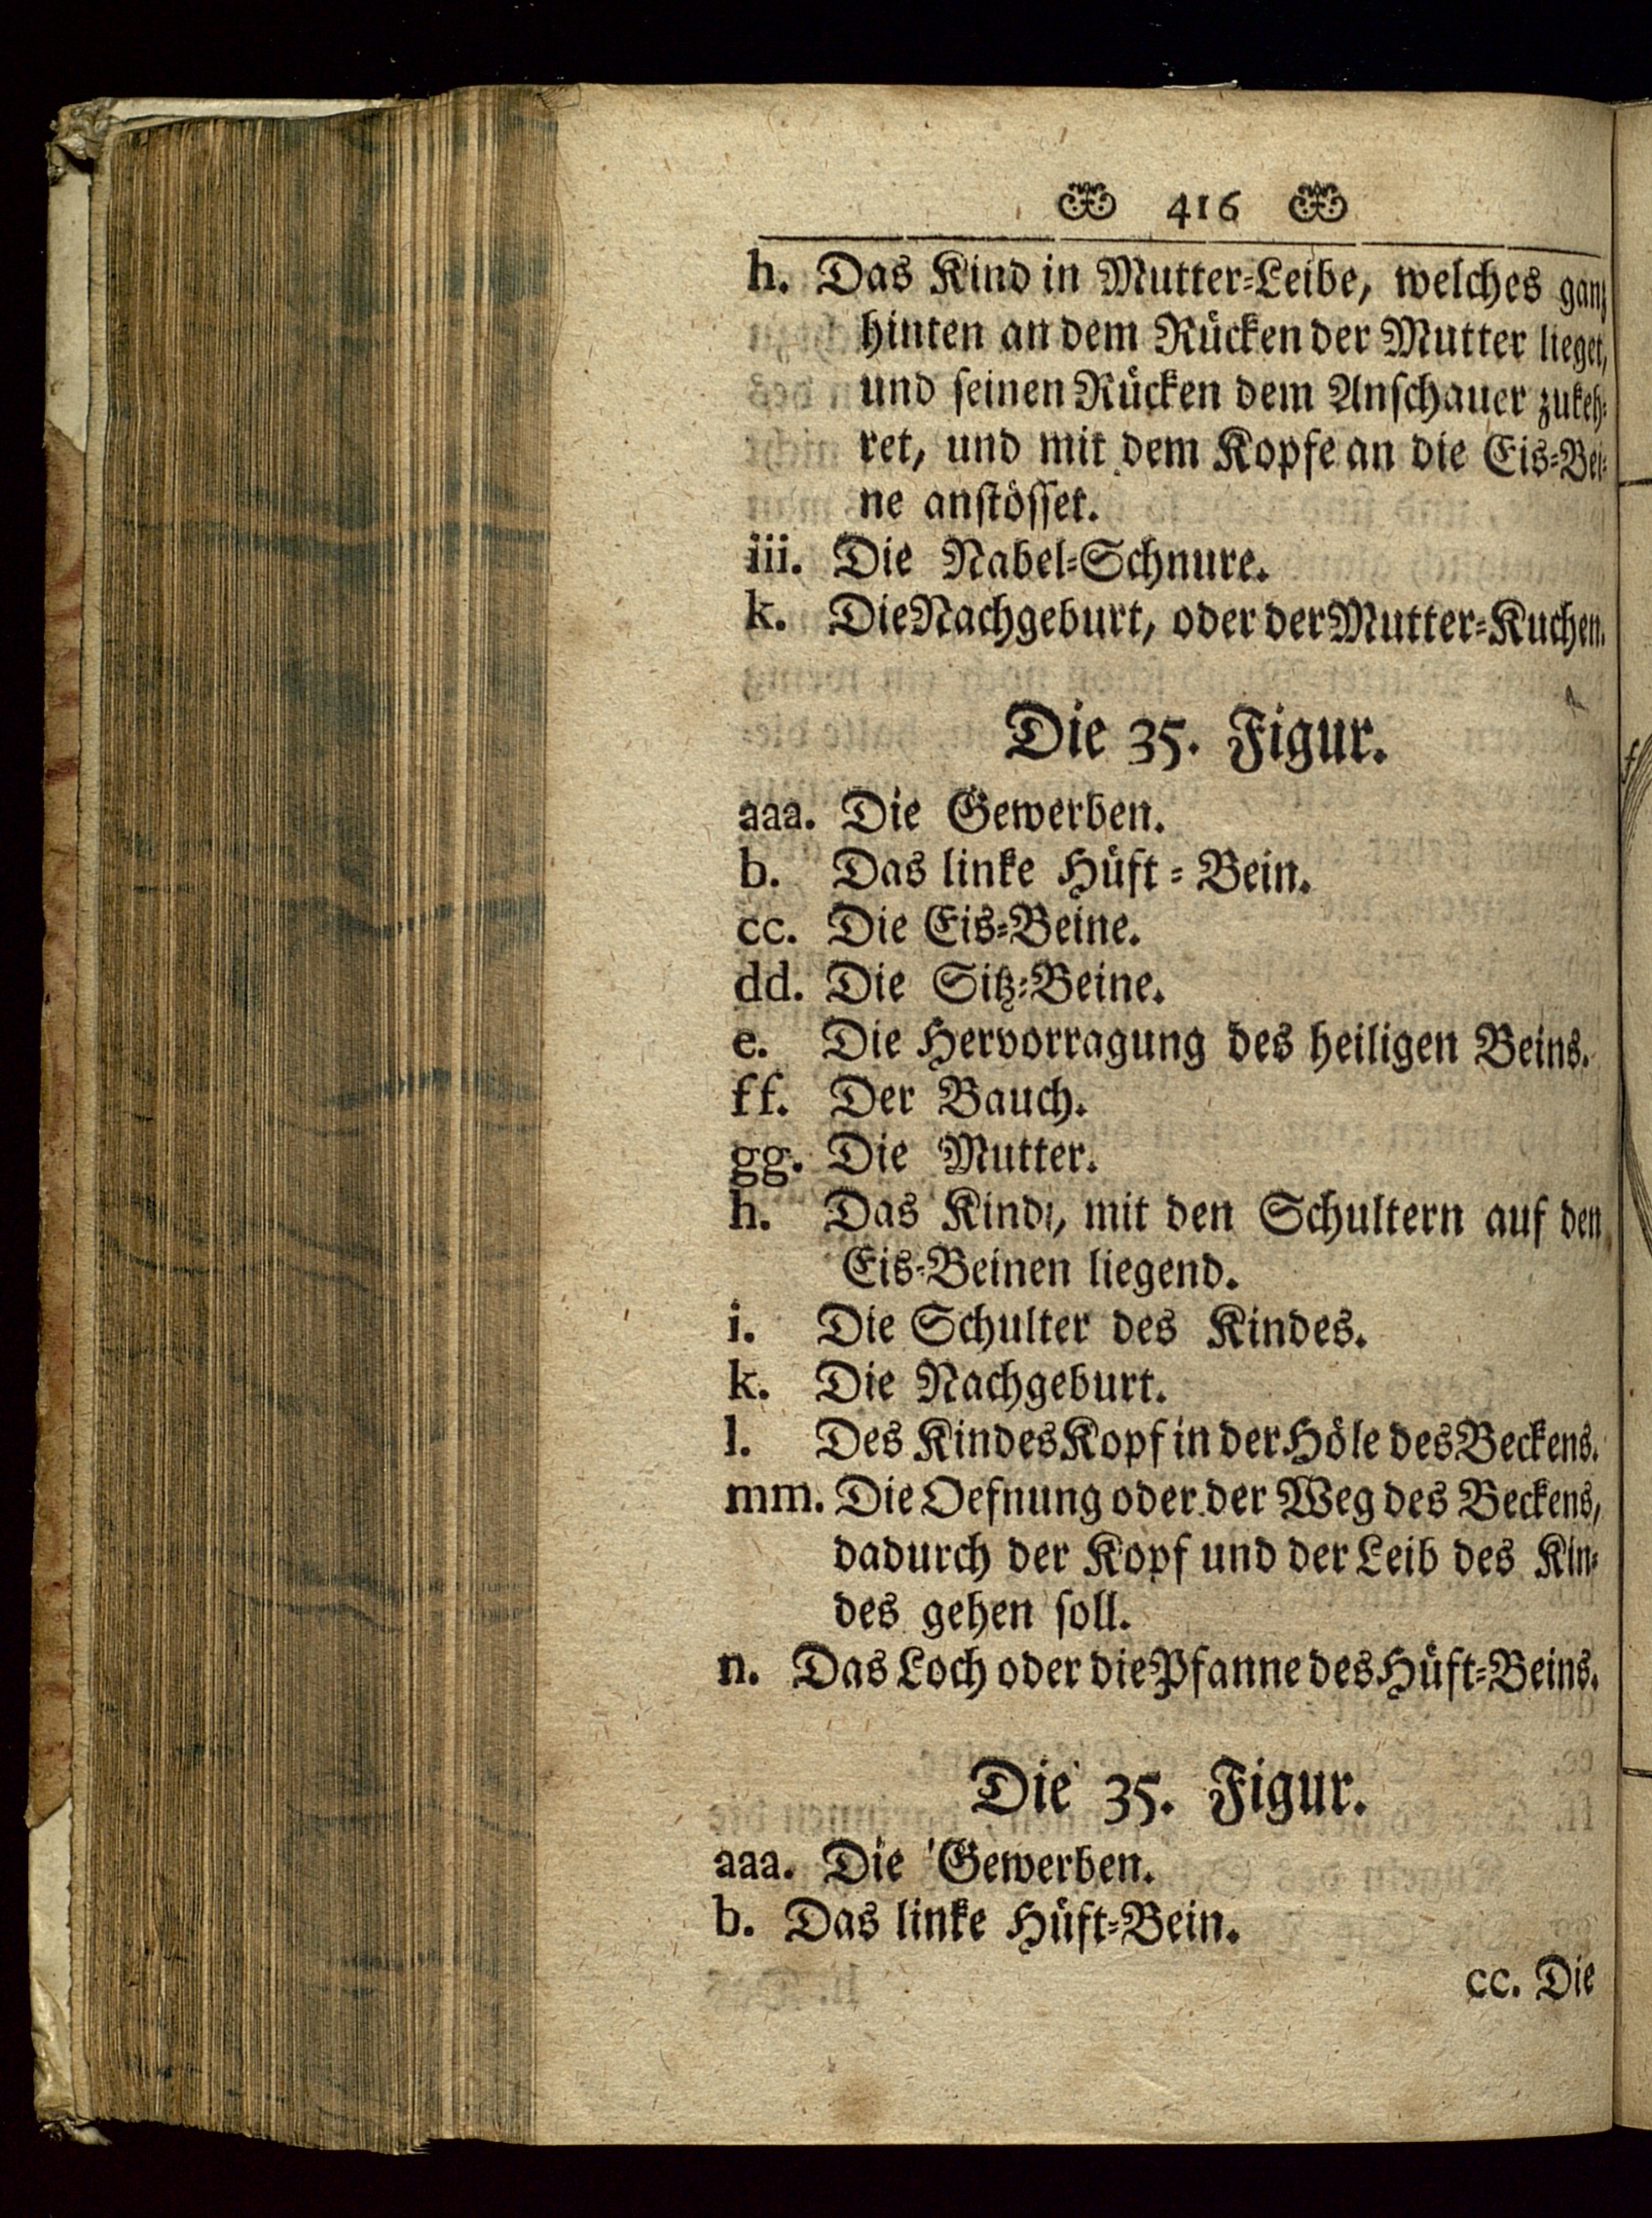 416
h. Das Kind in Mutter-Leibe, welches ganz
hinten an dem Rücken der Mutter lieget,
und seinen Rücken dem Anschauer zukeh-
ret, und mit dem Kopfe an die Eis-Bei-
ne anstösset.
iii. Die Nabel-Schnure.
k. Die Nachgeburt, oder der Mutter-Kuchen.
Die 35. Figur.
aaa. Die Gewerben.
b. Das linke Hüft-Bein.
cc. Die Eis-Beine.
dd. Die Sitz-Beine.
e. Die Hervorragung des heiligen Beins.
ff. Der Bauch.
gg. Die Mutter.
h. Das Kind, mit den Schultern auf den
Eis-Beinen liegend.
i. Die Schulter des Kindes.
k. Die Nachgeburt.
l. Des Kindes Kopf in der Höle des Beckens.
mm. Die Oefnung oder der Weg des Beckens,
dadurch der Kopf und der Leib des Kin-
des gehen soll.
n. Das Loch oder die Pfanne des Hüft-Beins.
Die 35. Figur.
aaa. Die Gewerben.
b. Das linke Hüft-Bein.
cc. Die